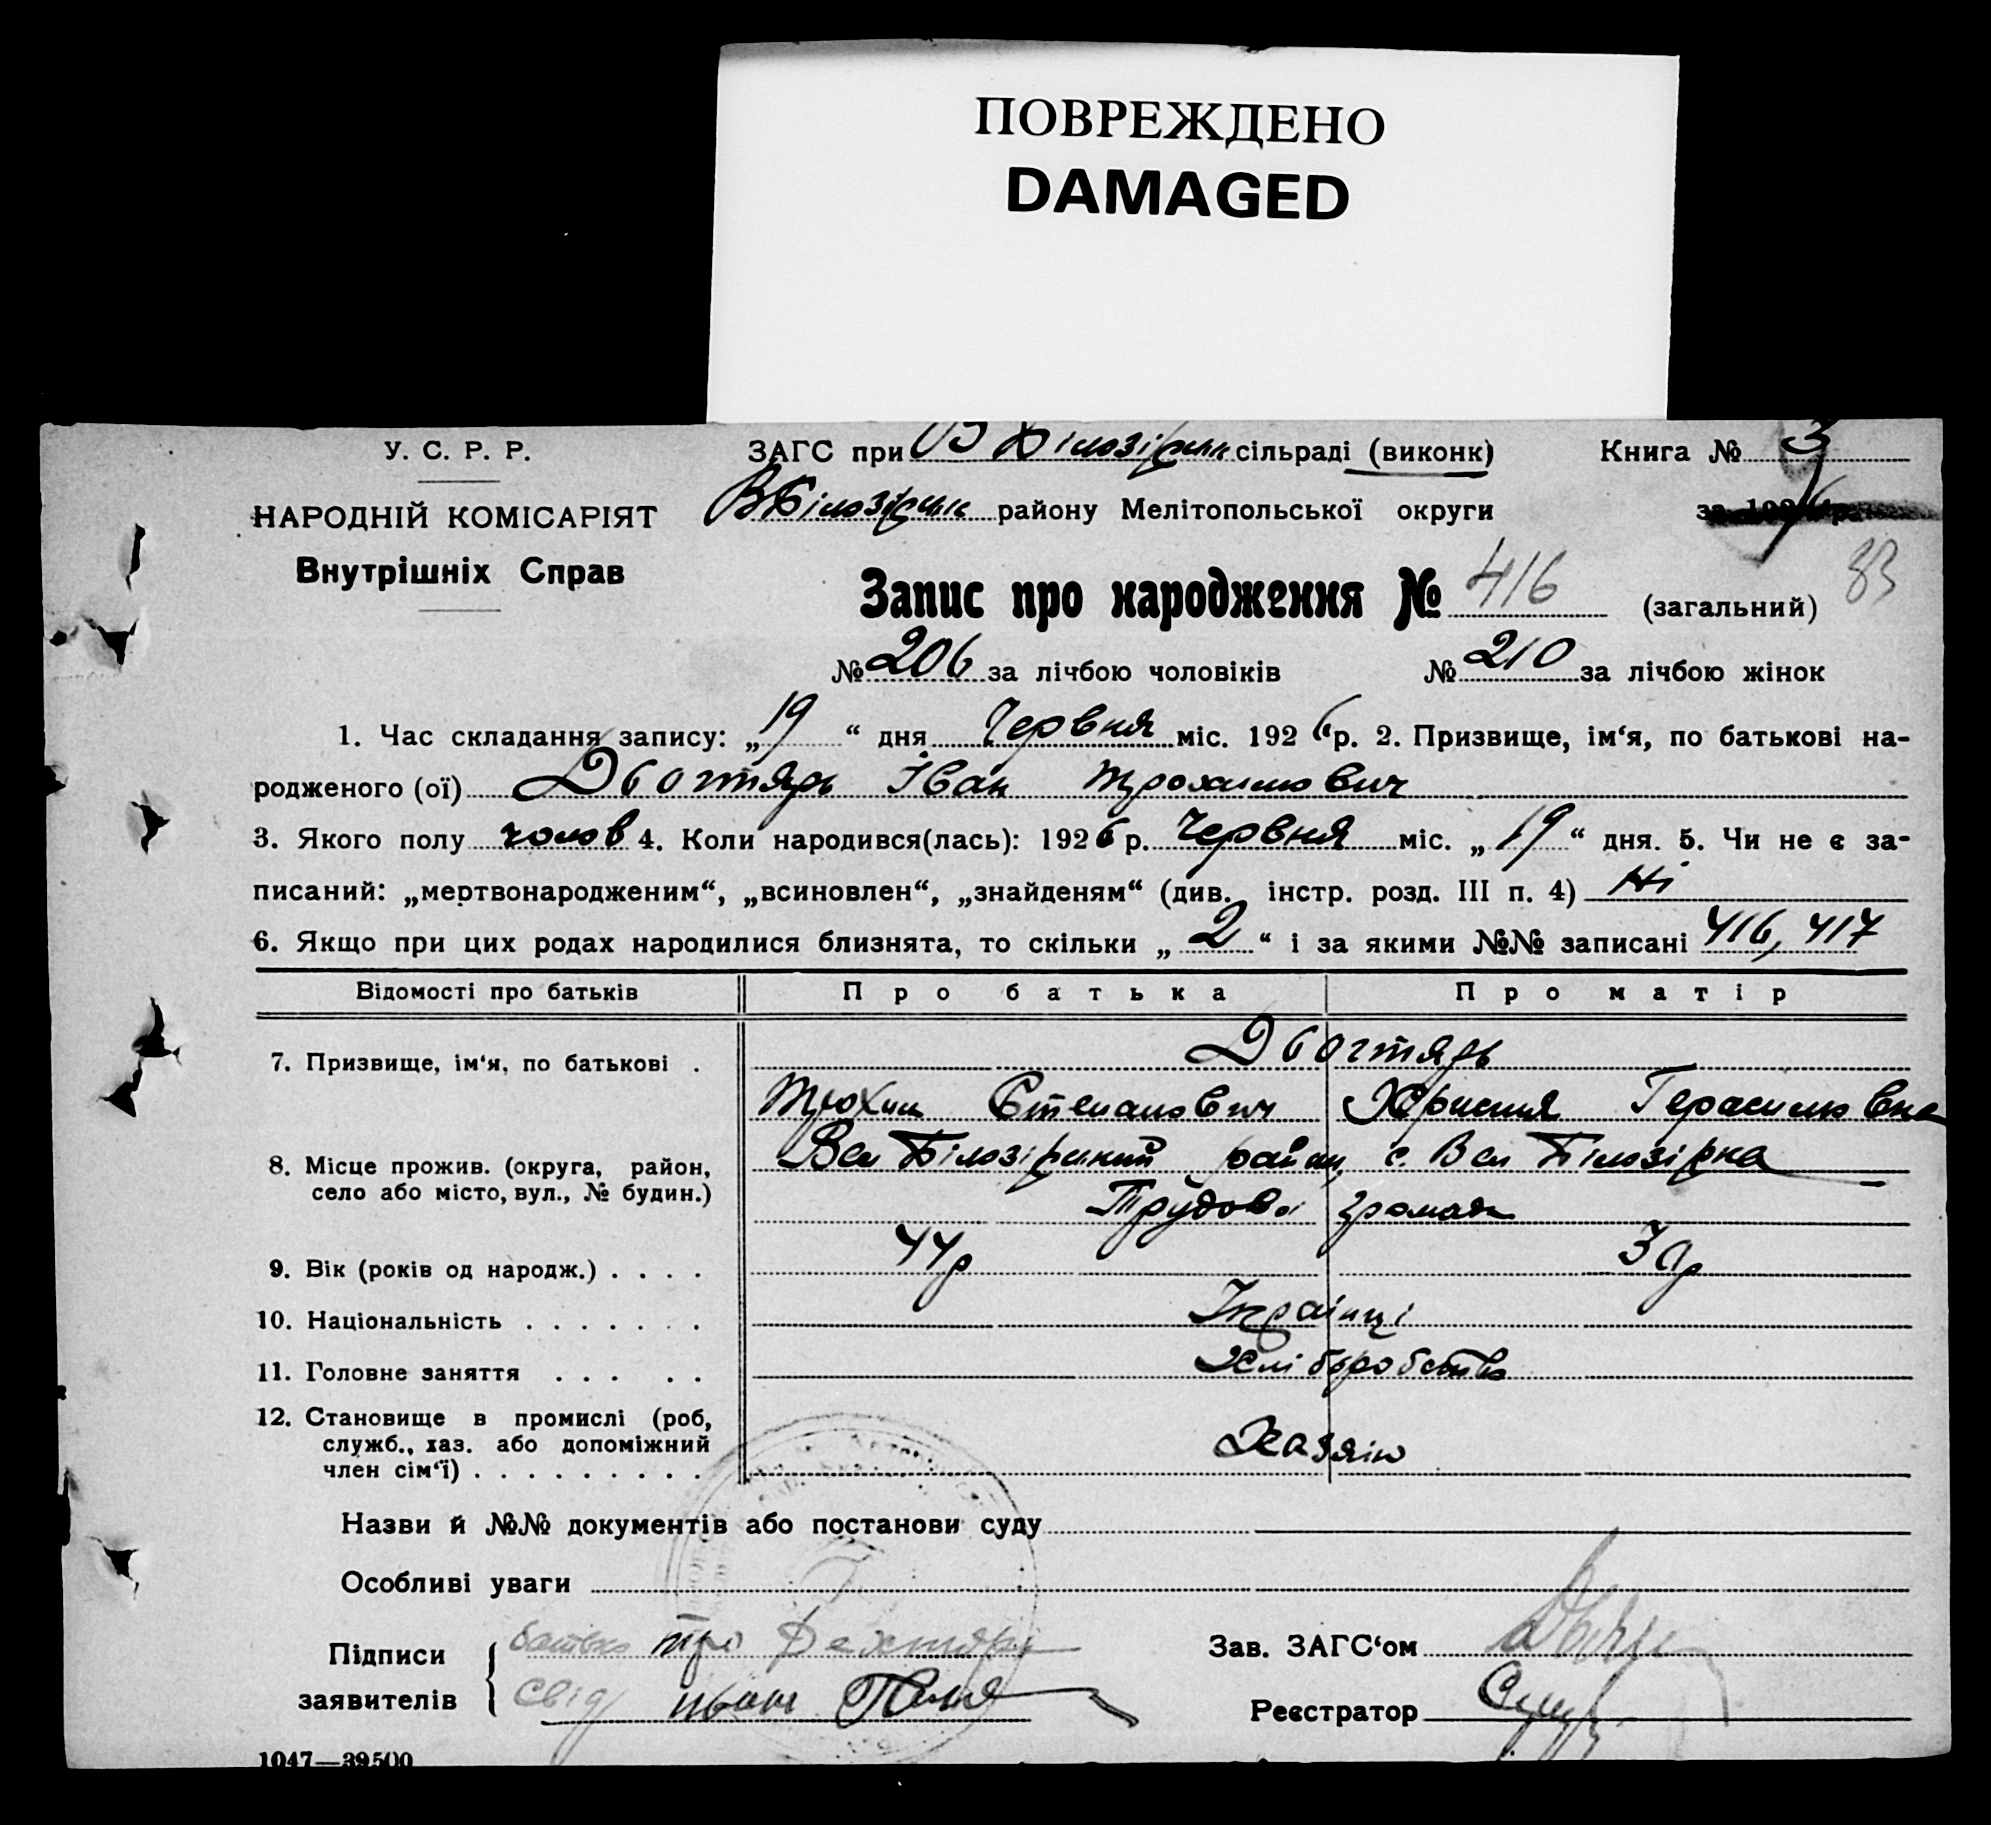 ПОВРЕЖДЕНО
DAMAGED
У. С. Р. Р.
ЗАГС при В Білозірськ сільраді (виконк)
Книга № 3
НАРОДНІЙ КОМІСАРІЯТ
ВБілозірськ району Мелітопольської округи
за 1926 р.
Внутрішніх Справ
Запис про народження № 416 (загальний) 83
№ 206 за лічбою чоловіків № 210 за лічбою жінок
1. Час складання запису: „19“ дня Червня міс. 1926 р. 2. Призвище, ім‘я, по батькові на-
родженого (ої) Дьогтярь Іван Трохимович
3. Якого полу чолов 4. Коли народився(лась): 1926 р. Червня міс. „19“ дня. 5. Чи не є за-
писаний: „мертвонародженим“, „всиновлен“, „знайденям“ (див. інстр. розд. III п. 4) Ні
6. Якщо при цих родах народилися близнята, то скільки „2“ і за якими №№ записані 416, 417
Відомості про батьків Про батька Про матір
7. Призвище, ім‘я, по батькові . Дьогтярь
Трохим Степанович Христя Герасимовна
8. Місце прожив. (округа, район, Вел Білозірський район, с. Вел Білозірка
село або місто, вул., № будин.) Трудова громада
9. Вік (років од народж.) . . . . 44р 39р
10. Національність . . . . . . . Українці
11. Головне заняття . . . . . Хліборобство
12. Становище в промислі (роб,
служб., хаз. або допоміжний Хазяін
член сім‘ї) . . . . . . . . .
Назви й №№ документів або постанови суду
Особливі уваги
Підписи батько Тро Дехтярь
Зав. ЗАГС‘ом
заявителів свід Иван
Реєстратор
1047—39500